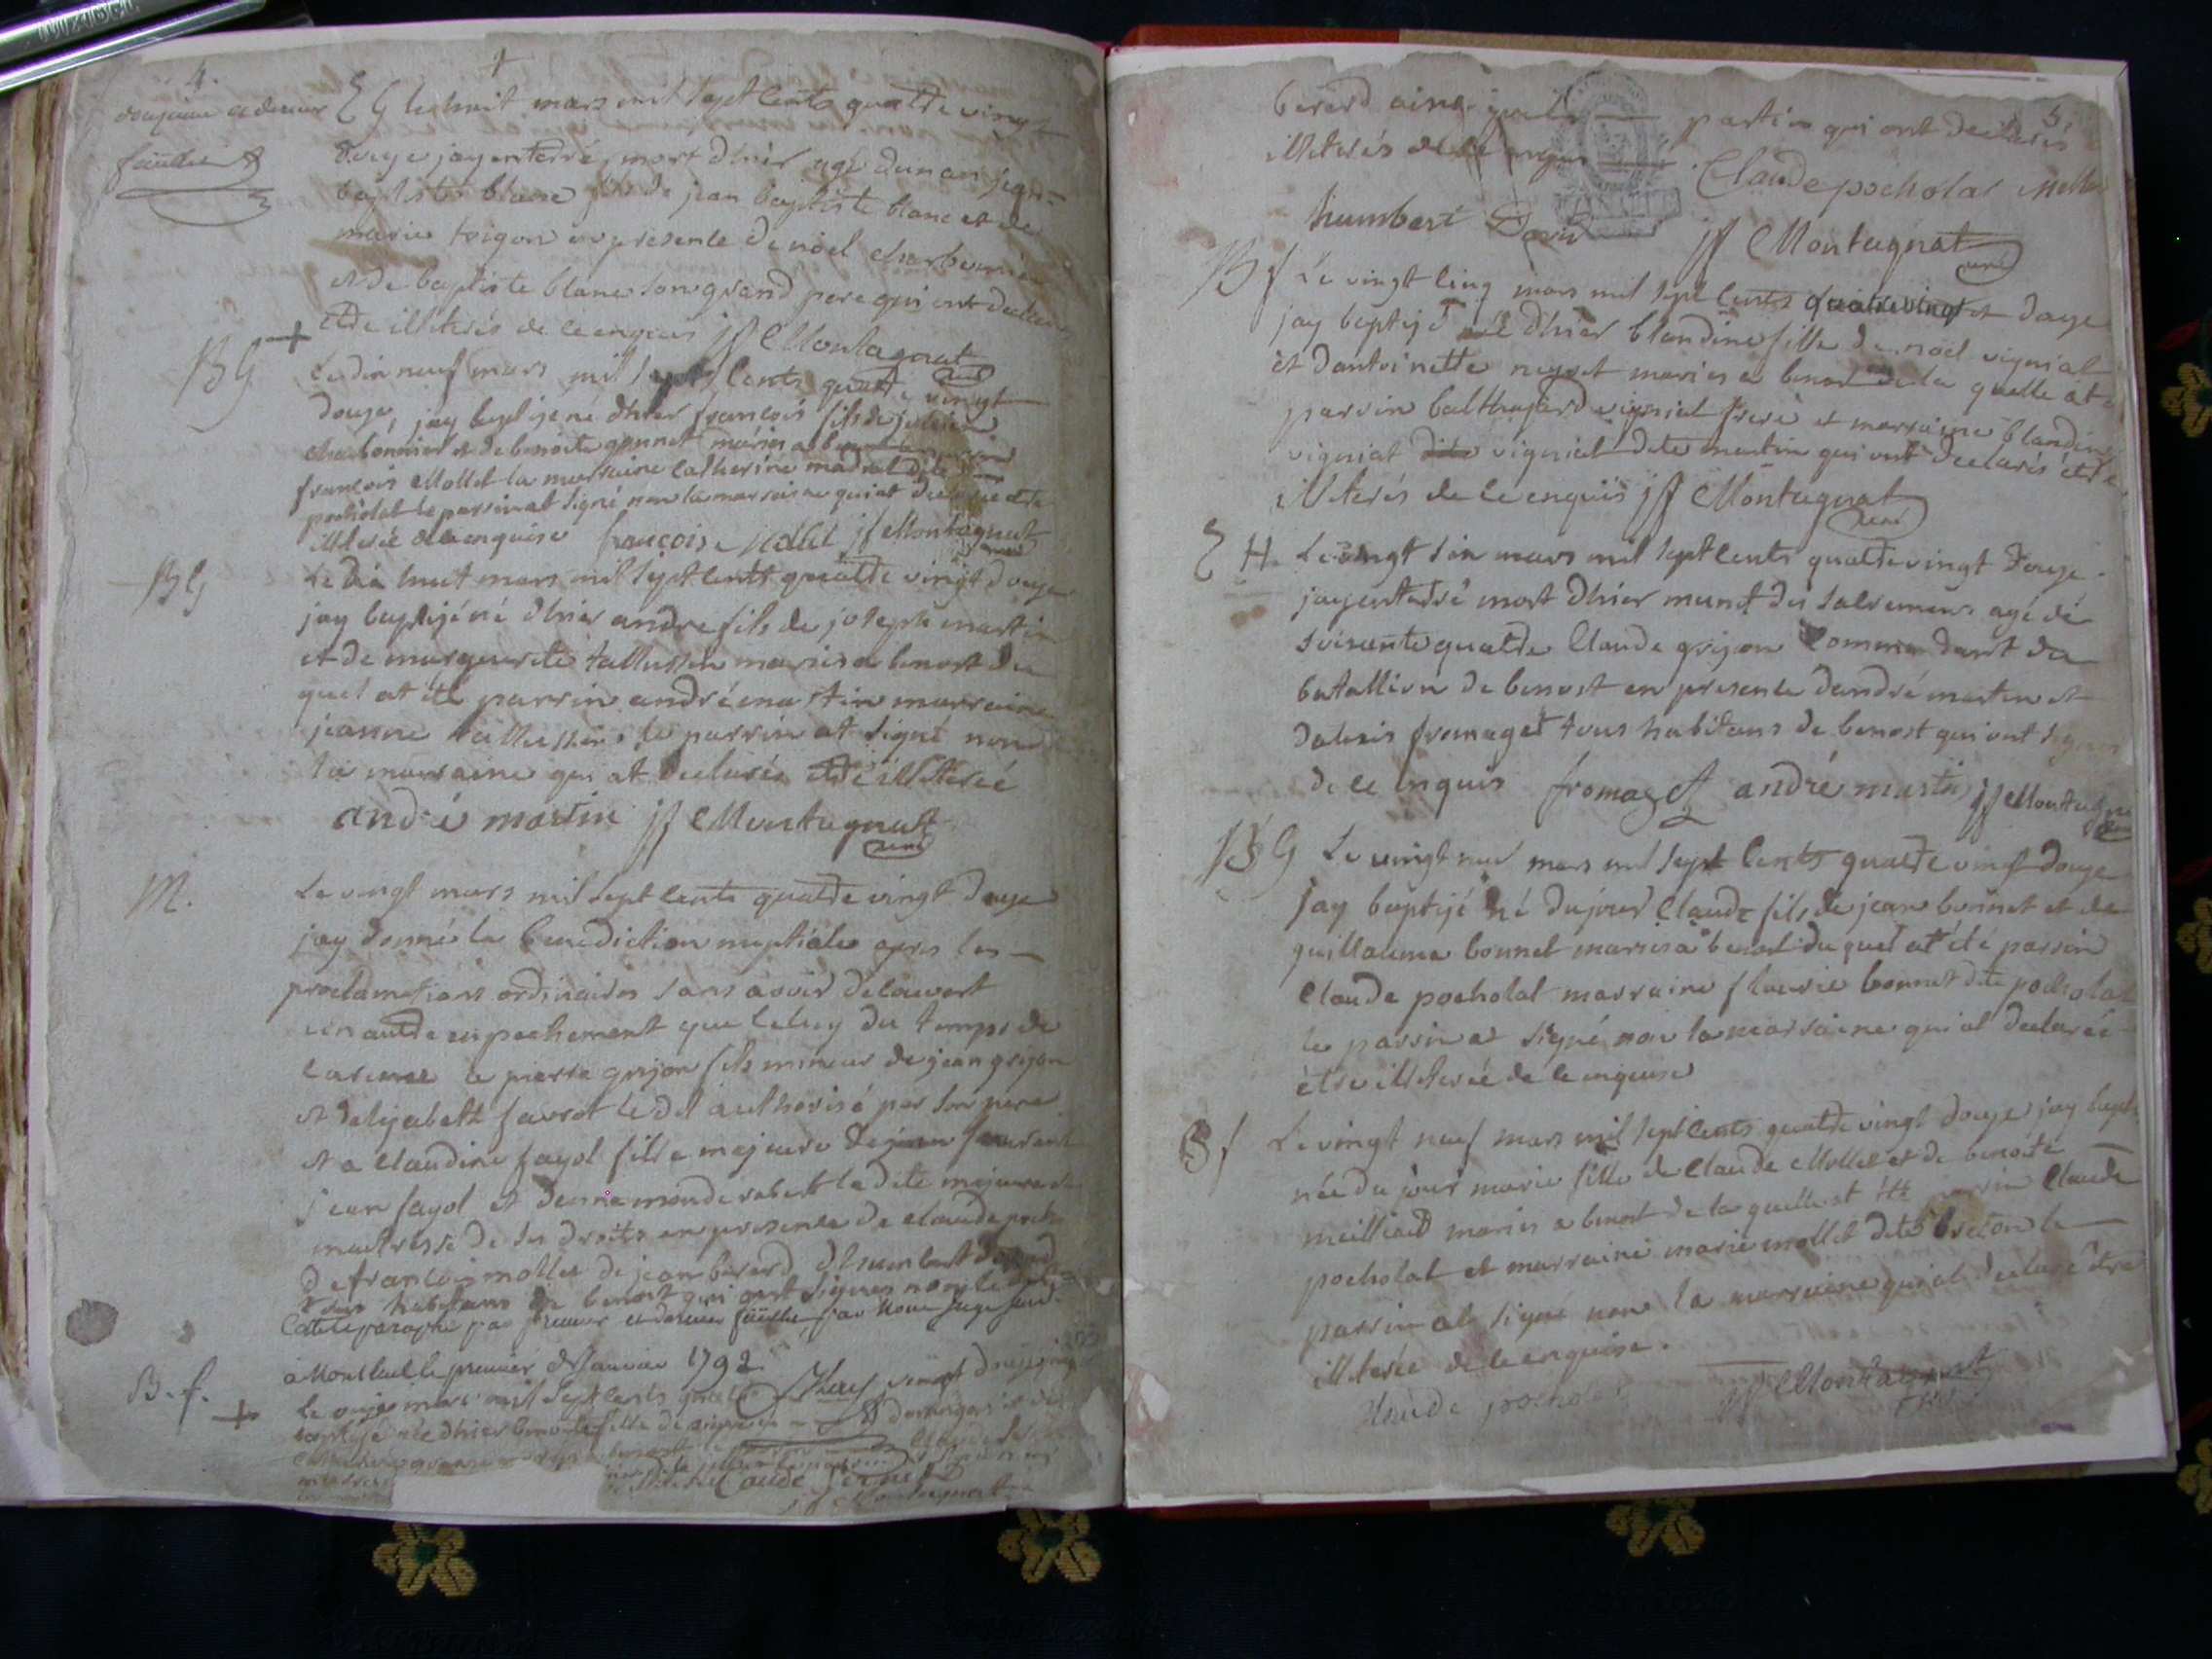 4.
douzieme et dernier
feuillet
E G le huit mars mil sept cents quatre vingt
douze jay enterré mort dhier agé dun an jean
baptiste blanc fils de jean baptiste blanc et de
marie trigon en presente de noël charbonnier
et de baptiste blanc son grand pere qui ont declaré
etre illiterés de ce enquis jf Montagnat
curé
BG + Le dix neuf mars mil sept cents quatre vingt
douze, jay baptizé né dhier françois fils de
charbonnier et de benoite gonnet mariés a
françois Mollet la marraine catherine dite
pocholat le parrin at signé non la marraine qui at declaré etre
illiterée de ce enquise françois Mollet jf Montagnat
curé
BG Le dix huit mars mil sept cents quatre vingt douze
jay baptizé né dhier andre fils de joseph martin
et de marguerite tallussin mariés a benost du
quel at été parrin andré martin marraine
jeanne tallussin le parrin at signé non
la marraine qui at declarée etre illiterée
andré martin jf Montagnat
curé
M. Le vingt mars mil sept cents quatre vingt douze
jay donné la benediction nuptiale apres les
proclamations ordinaires sans avoir decouvert
un autre enpechement que celuy du temps de
careme a pierre grijon fils mineur de jean grijon
et delizabeth favrot le dit authorisé par son pere
et a claudine fayol fille majeure de
jean fayol et denne monde robert la dite majeure et
maitresse de ses droits en presente de claude
de françois mollet de jean berard dhumbert
tous habitans de benost qui ont signés non le
Cotté et paraphé par premier et dernier feuillet par Nous juge
a Montluel le premier Janvier 1792
B.f. + le onze mars mil sept cents quatre vingt douze
baptizé née dhier benoite fille de
Claude
Montagnat
5
berard ainsi que partie qui ont declarés
illiterés de ce enquis Claude pocholat Mollet
humbert jf Montagnat
curé
B f Le vingt cinq mars mil sept cents quatrevingt douze
jay baptizé née dhier blandine fille de noel vignial
et dantoinette neyret mariés a benost de la quelle at
parrin balthazard vignial frere et marraine blandine
vigniat dite vignial dite martin qui ont declarés etre
illiterés de ce enquis jf Montagnat
curé
E H. Le vingt six mars mil sept cents quatre vingt douze
jay enterré mort dhier muni des sacremens agé de
soixante quatre Claude grijon Commandant du
batallion de benost en presente dandré martin et
dalexis fromaget tous habitans de benost qui ont signés
de ce enquis fromaget andré martin jf Montagnat
curé
BG Le vingt neuf mars mil sept cents quatre vingt douze
jay baptizé né du jour Claude fils de jean bonnet et de
guillauma bonnet mariés a benost du quel at été parrin
Claude pocholat marraine fleurie bonnet dite pocholat
le parrin at signé non la marraine qui at declarée
etre illiterée de ce enquise
B f Le vingt neuf mars mil sept cents quatre vingt douze jay bapt
née du jour marie fille de Claude Mollet et de benoite
meilliard mariés a benost de la quelle at été parrin Claude
pocholat et marraine marie mollet dite breton le
parrin at signé non la marraine qui at declaré être
illiterée de ce enquise.
Claude pocholat jf Montagnat
curé